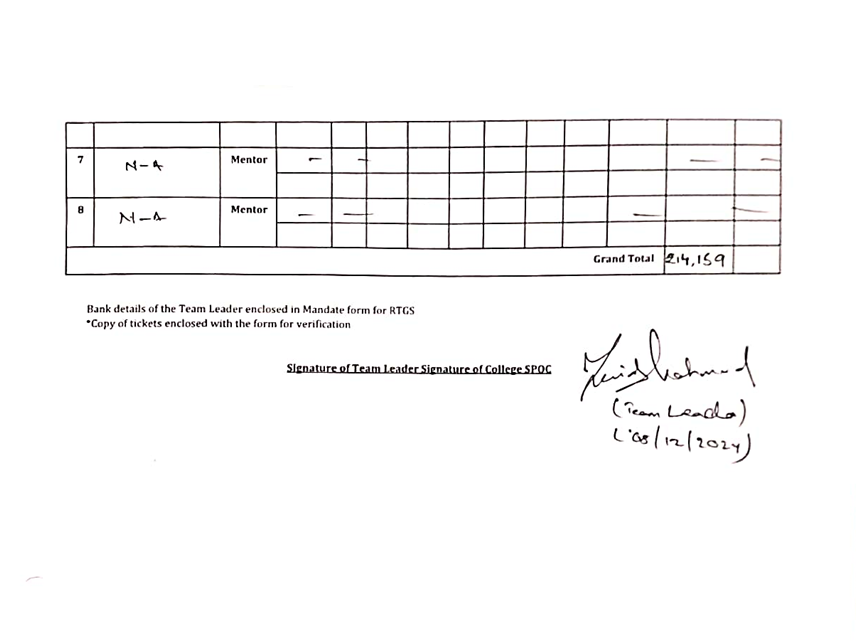 7 N-A Mentor — — — —
8 N-A Mentor — — — —
Grand Total 214,159
Bank details of the Team Leader enclosed in Mandate form for RTGS
*Copy of tickets enclosed with the form for verification
Signature of Team Leader Signature of College SPOC
(Team Leader)
/12/2024)